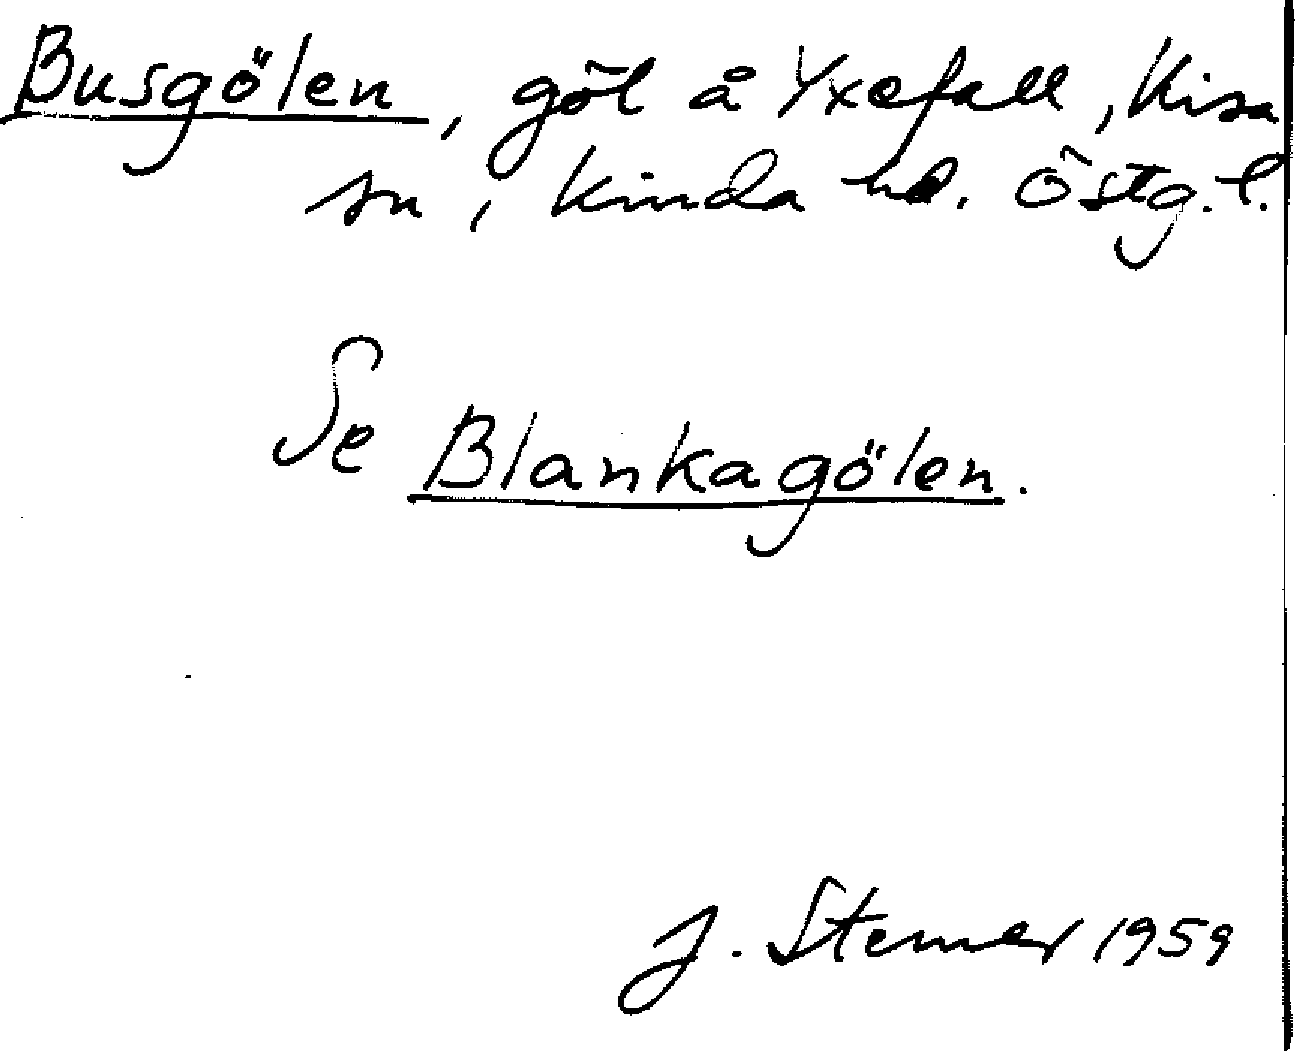 Busgölen, göl å Yxefall, Kisa
sn, Kinda hd. Östg. l.
Se Blankagölen.
J. Sterner 1959